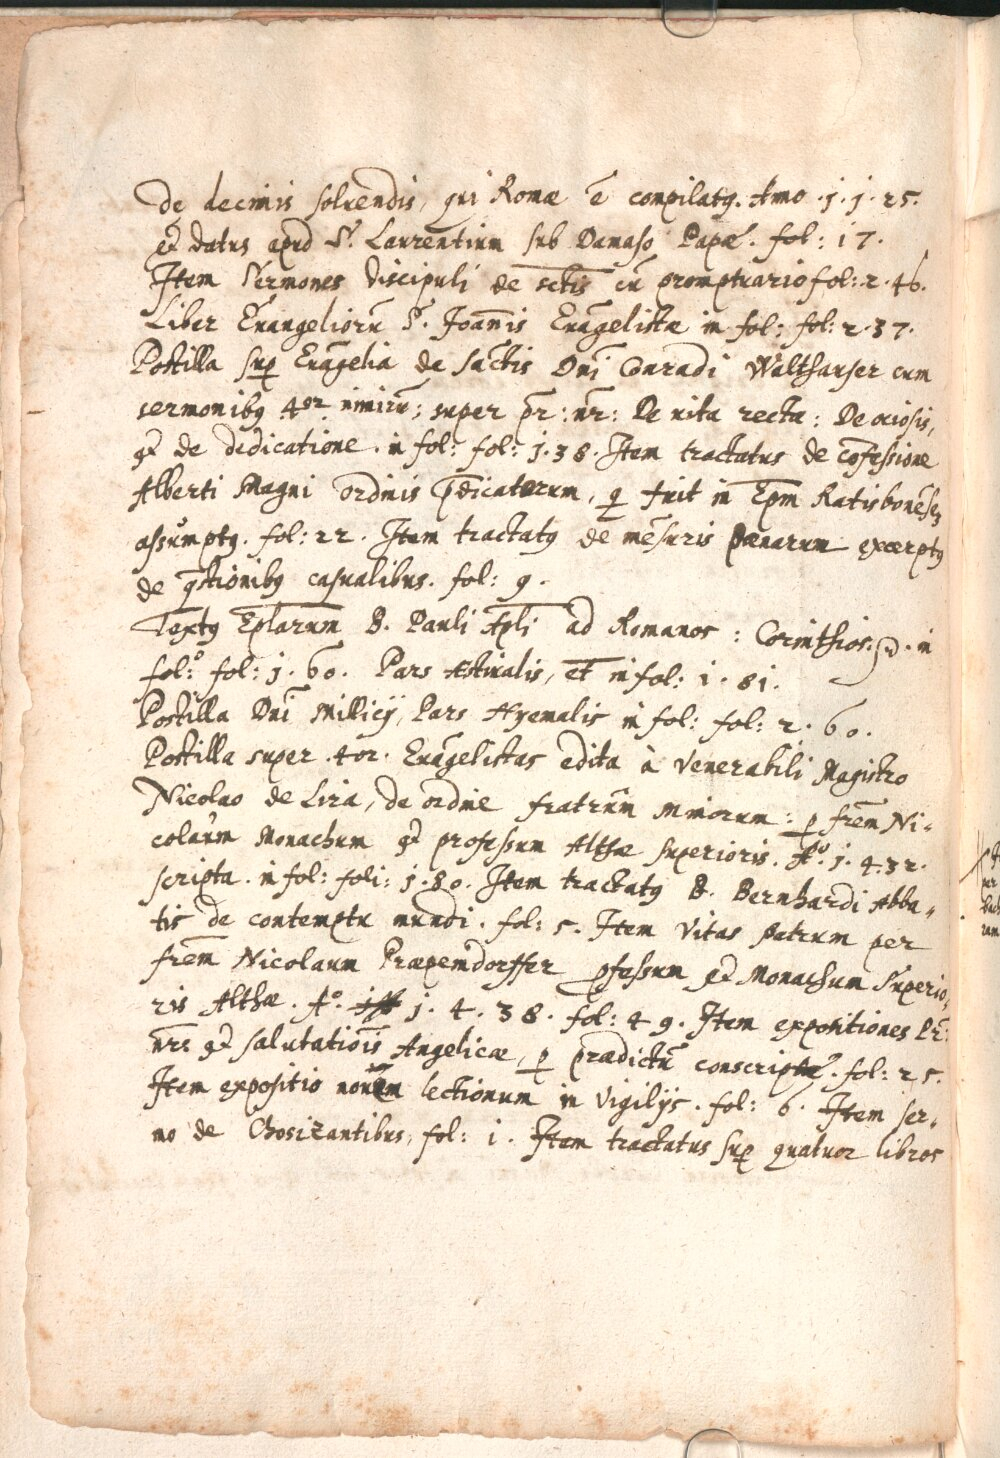 De decimis solvendis, qui Romæ ē compilatꝰ. Anno .j.j.25.
et datus apud S. Laurentium sub Damaso Papæ. fol: 17.
Item Sermones Discipuli de sctis cū promptuario fol: 2.46.
Liber Evangeliorū S. Joānis Evāgelistæ in fol: fol: 2.37.
Postilla suꝑ Evāgelia de Sāctis Dni Conradi Walthauser cum
sermonibꝰ 4or nimirū; super pr: nr: De vita recta: De ociosis,
et de dedicatione. in fol: fol: j.38. Item tractatus de cōfessione
Alberti Magni ordinis pdicatorum, q fuit in Epm Ratisbonēsē
assūmptꝰ. fol: 22. Item tractatꝰ de mēsuris pænarum excerptꝰ
de qstionibꝰ casualibus. fol: 9.
Textꝰ Eplarum B. Pauli Apli ad Romanos: Corinthios. . in
fol: fol: j.60. Pars Æstivalis, et in fol: 1.81.
Postilla Dni Millicij, Pars Hyemalis in fol: fol: 2.60.
Postilla super .4or. Evāgelistas edita à Venerabili Magistro
Nicolao de Lira, de ordine fratrūm minorum: ꝑ frēm Ni-
colaūm Monachum et professum Althæ Superioris. Aº. j.432.
scripta. in fol: foli: j.80. Item tractatꝰ B. Bernhardi Abba-
tis de contemptu mundi. fol: 5. Item Vitas patrum per
frēm Nicolaum Præpemdorffer pfessum et Monachum Superio-
ris Althæ. Aº. j.4.38. fol: 49. Item expositiones Pr:
nrs et salutatiois Angelicæ, ꝑ prædictū conscriptæ. fol: 25.
Item expositio novem lectionum in Vigilijs. fol: 6. Item ser-
mo de Chosizantibus, fol: 1. Item tractatus suꝑ quatuor libros